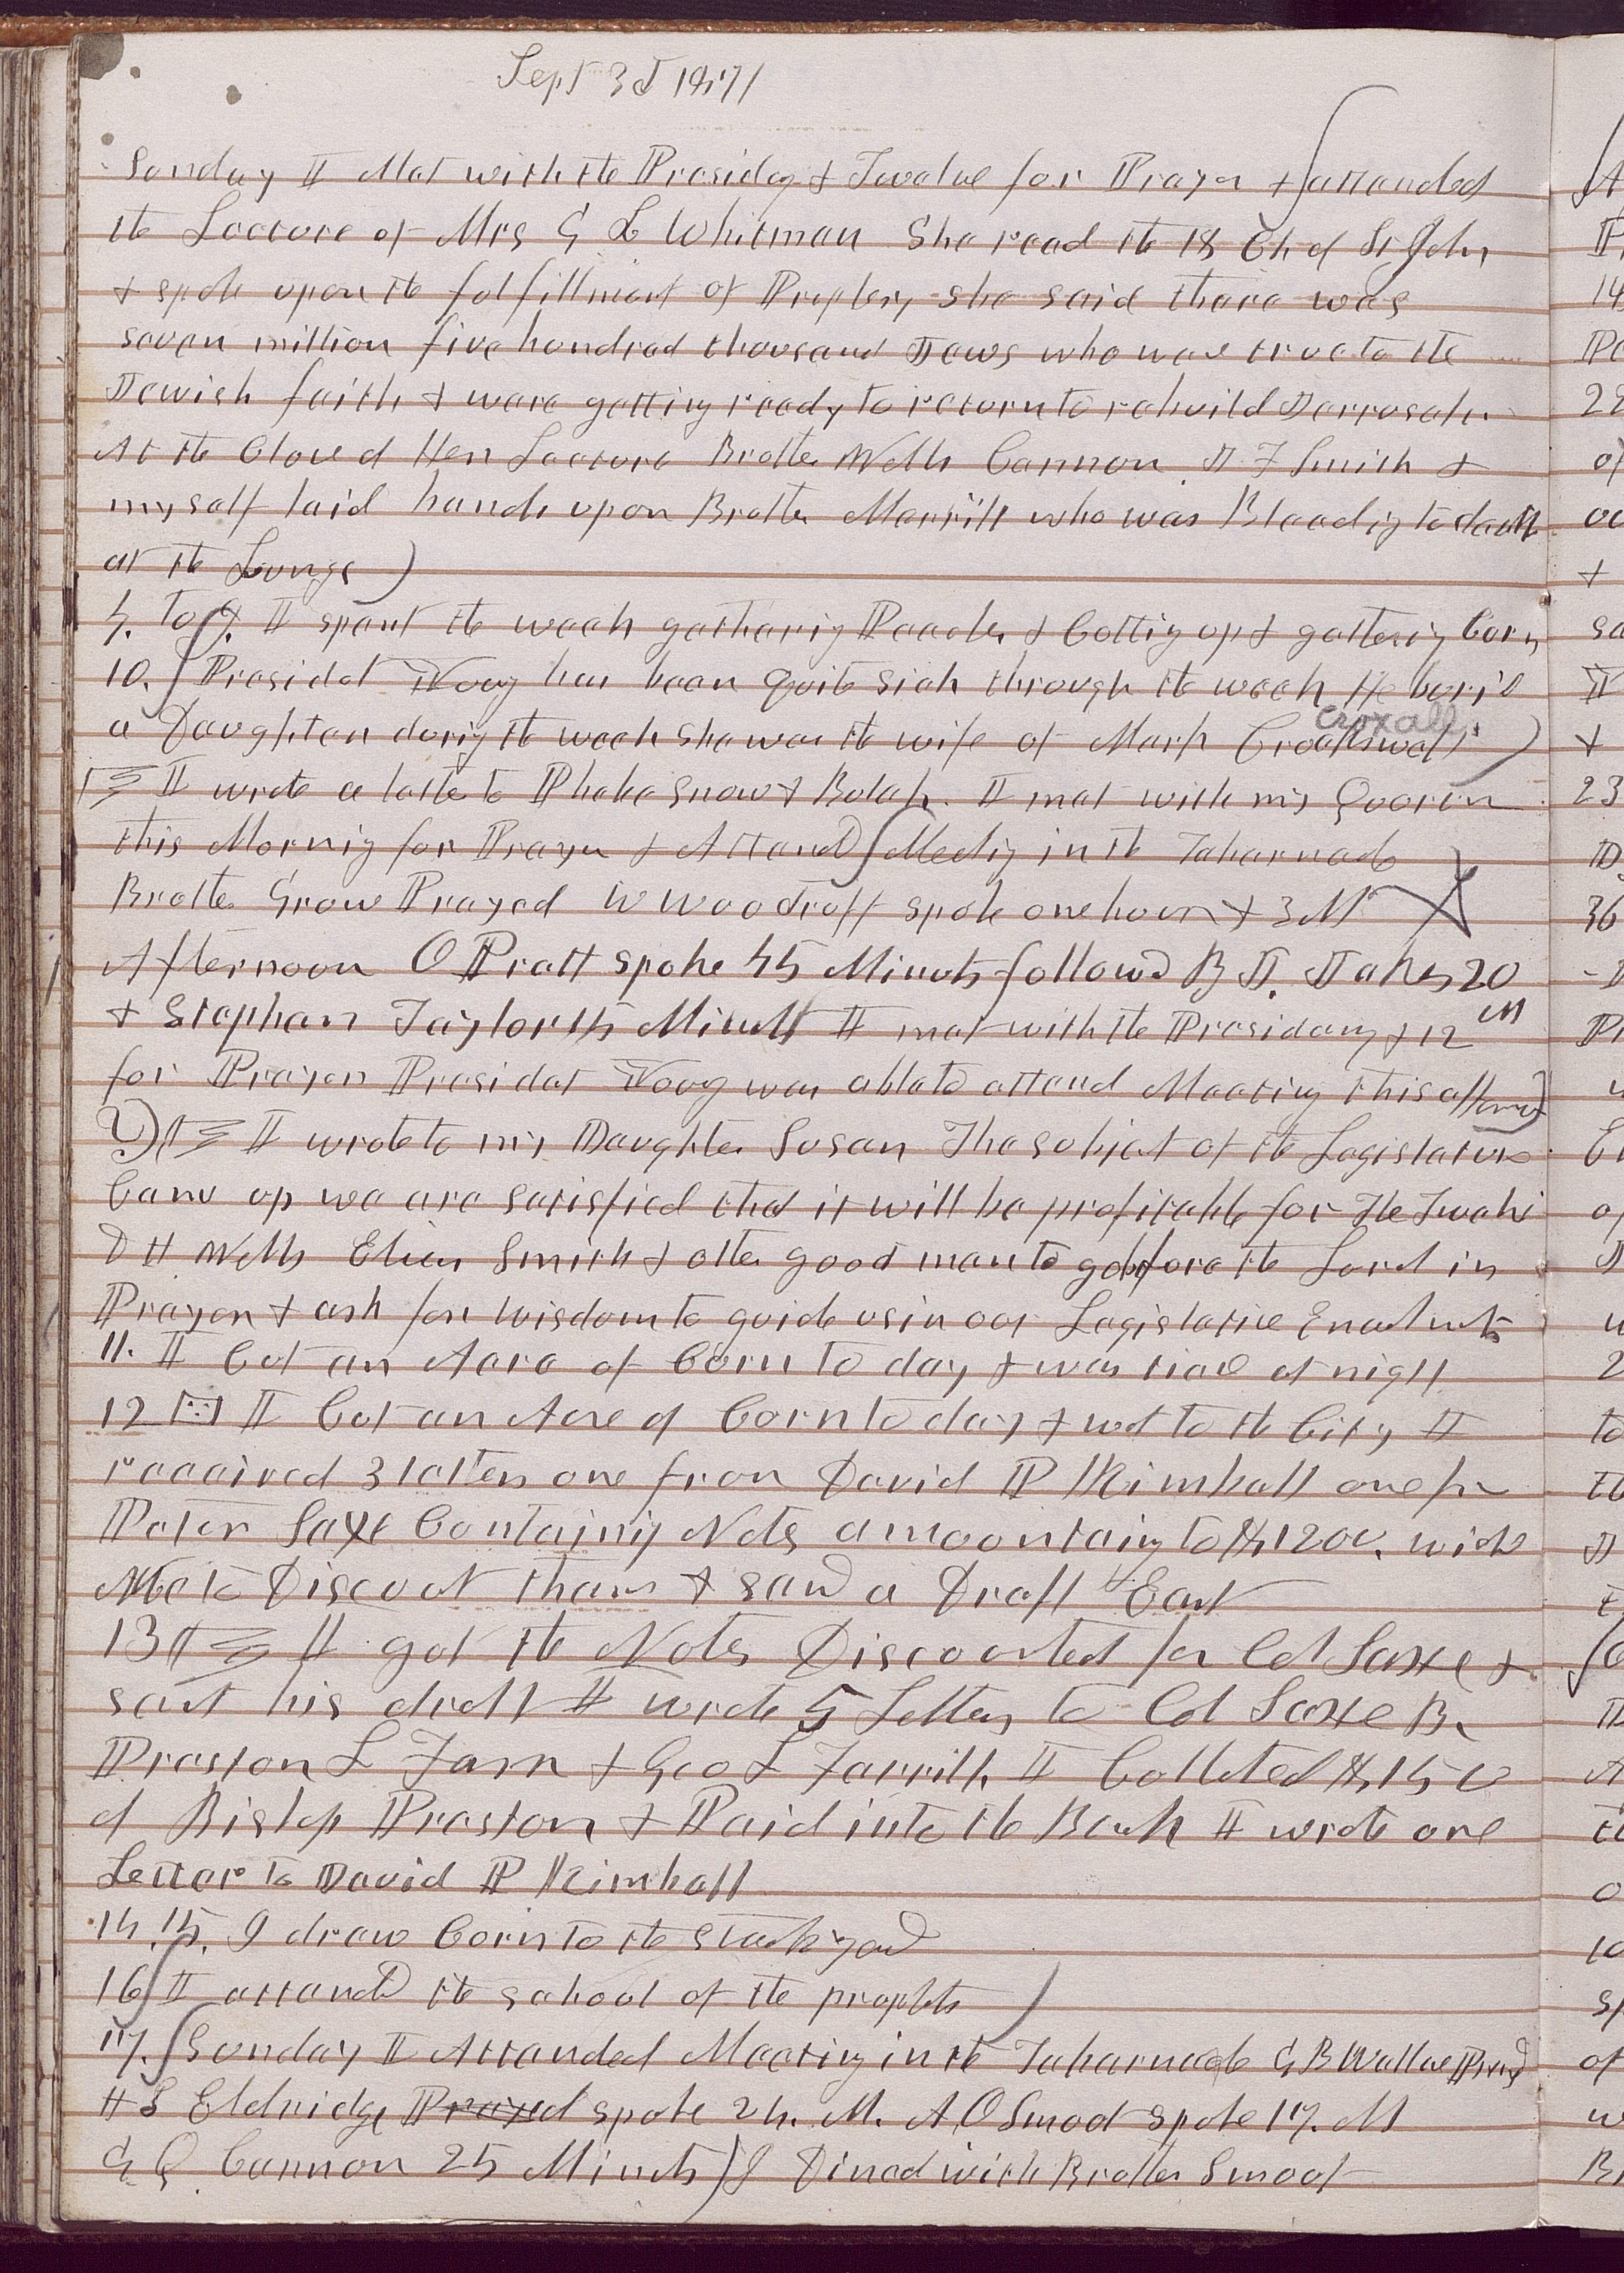 Sept 3d 1871
Sunday I Met with the Presidey & Twelve for Prayer & attended
the Lecture of Mrs G L Whitman She read the 18 Ch of St John
& spoke upon the fulfillment of Prophesy she said there was
seven million five hundred thousand Jews who was true to the
Jewish faith & were getting ready to return to rebuild Jerrusalem
At the Close of Her Lecture Brother Wells Cannon J F Smith &
myself laid hands upon Brother Merrill who was Bleeding to death
at the Lungs)
4. to 9. I spent the week gathering Peaches & Cutting up & gathering Corn
10. President Young has been quite sick through the week He buried
a Daughter durig the week she was the wife of Mark
Croxall
I wrote a letter to Phebe Snow & Bulah. I met with my Quorum
this Mornig for Prayer & Attend Meetig in the Tabernacle
Brother Grow Prayed W Woodruff spoke one hour & 3 M
Afternoon O Pratt spoke 45 Minuts followd By J. Jakes 20
& Stephen Taylor 15 Minutes I met with the Presidency & 12
M
for Prayer President Young was able to attend Meeting this afternoon
I wrote to my Daughter Susan The subject of the Legislature
Came up we are satisfied that it will be profitable for The Twelve
D H Wells Elias Smith & other good men to go before the Lord in
Prayer & ask for wisdom to guide us in our Legislative Enactments
11. I Cut an Acre of Corn to day & was tired at night
12 I Cut an Acre of Corn to day & wet to the City I
received 3 letters one from David P Kimball one from
Peter Saxe Containig Nots amountaing to $1200. wishd
Me to Discout them & send a Draft East
13 I got the Notes Discounted for Col Saxe &
sent his draft I wrote 5 Letters to Col Saxe B.
Preston L Farr & Geo L Farrill. I Collected $150
of Bishop Preston & Paid into the Bank I wrote one
Letter to David P Kimball
14. 15. I drew Corn to the stackyard
16 I attend the school of the prophets
17. Sunday I Attended Meeting in the Tabernacle G B Wallace Prayed
H S Eldridge Prayed spoke 24. M. A O Smoot spoke 17. M
G Q Cannon 25 Minuts) I Dined with Brother Smoot